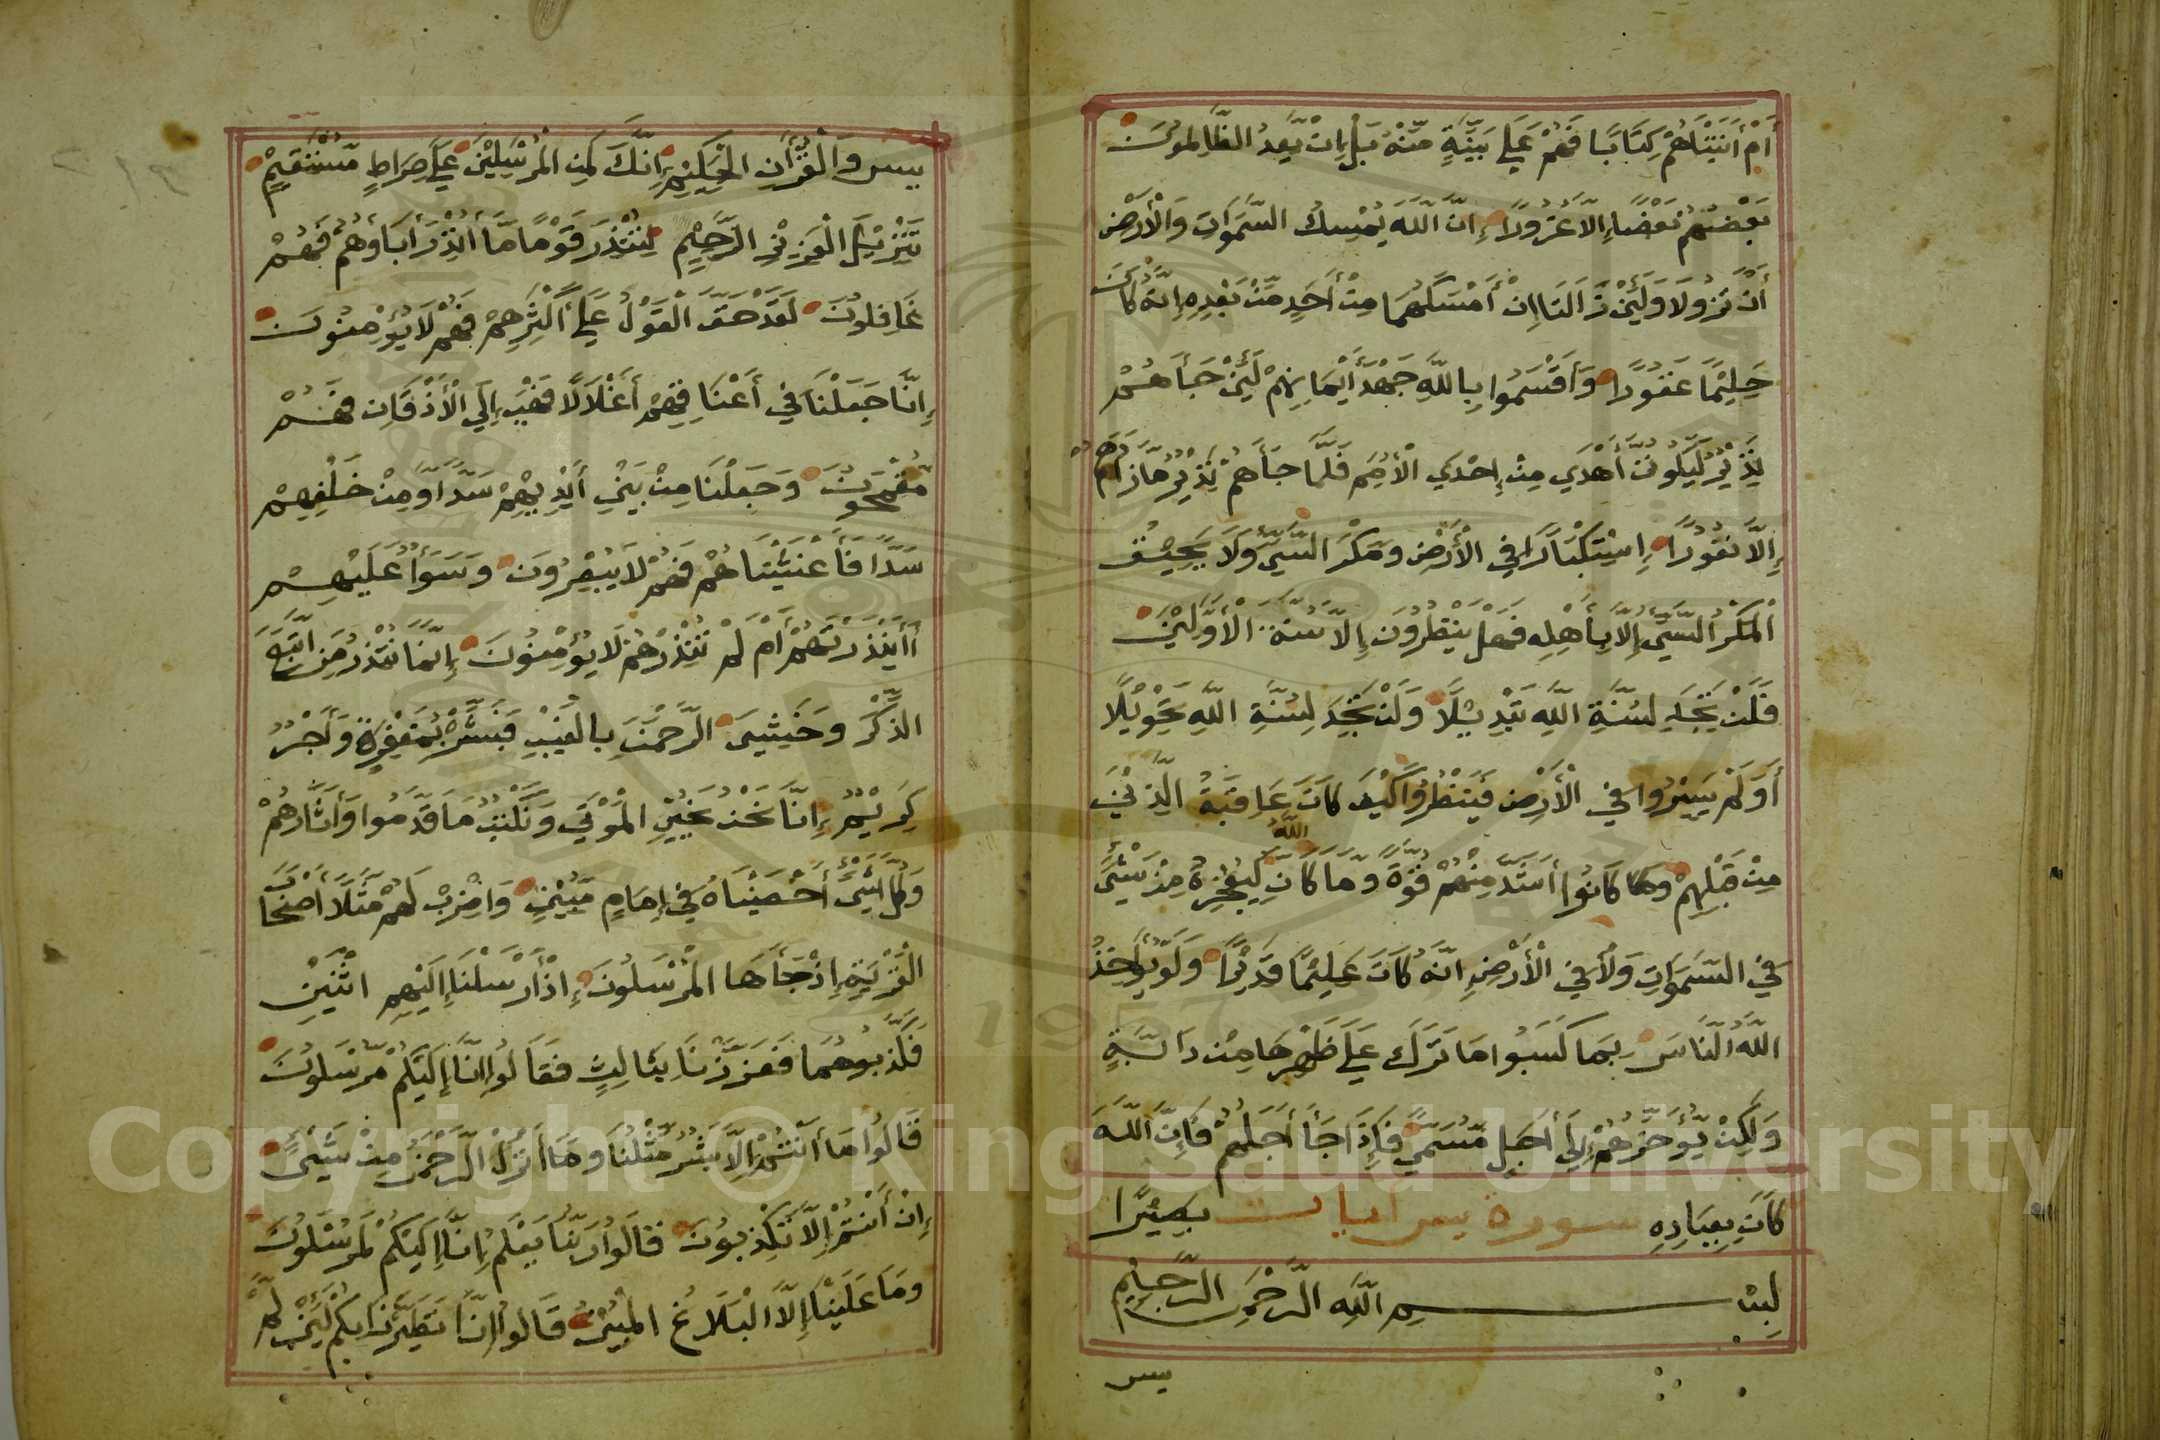 أَمْ أَتَيْنَاهُمْ كِتَابًا فَهُمْ عَلَى بَيِّنَةٍ مِّنْهُ بَلْ إِنْ يَّعِدُ الظَّالِمُونَ
بَعْضُهُمْ بَعْضًا إِلَّا غُرُورًا إِنَّ اللَّهَ يُمْسِكُ السَّمَوَاتِ وَالْأَرْضَ
أَنْ تَزُولَا وَلَئِنْ زَالَتَا إِنْ أَمْسَكَهُمَا مِنْ أَحَدٍ مِّنْ بَعْدِهِ إِنَّهُ كَانَ
حَلِيْمًا غَفُورًا وَأَقْسَمُوا بِاللَّهِ جَهْدَ أَيْمَانِهِمْ لَئِنْ جَأَهُمْ
نَذِيْرٌ لَّيَكُونُنَّ أَهْدَي مِنْ إِحْدَي الْأُمَمِ فَلَمَّا جَأَهُمْ نَذِيْرٌ مَّا زَادَهُمْ
إِلَّا نُفُورًا إِسْتِكْبَارًا فِي الْأَرْضِ وَمَكْرَ السَّيِّ وَلَا يَحِيْقُ
الْمَكْرُ السَّيِّ إِلَّا بِأَهْلِهِ فَهَلْ يَنْظُرُونَ إِلَّا سُنَّةَ الْأَوَّلِيْنَ
فَلَنْ تَجِدَ لِسُنَّةِ اللَّهِ تَبْدِيْلًا وَلَنْ تَجِدَ لِسُنَّةِ اللَّهِ تَحْوِيْلًا
أَوَلَمْ يَسِيْرُوا فِي الْأَرْضِ فَيَنْظُرُوا كَيْفَ كَانَ عَاقِبَةُ الَّذِيْنَ
مِنْ قَبْلِهِمْ وَكَانُوا أَشَدَّ مِنْهُمْ قُوَّةً وَمَا كَانَ اللَّهُ لِيُعْجِزَهُ مِنْ شَيْئٍ
فِي السَّمَوَاتِ وَلَا فِي الْأَرْضِ إِنَّهُ كَانَ عَلِيْمًا قَدِيْرًا وَلَوْ يُؤَاخِذُ
اللَّهُ النَّاسَ بِمَا كَسَبُوا مَا تَرَكَ عَلَى ظَهْرِهَا مِنْ دَابَّةٍ
وَلَكِنْ يُّؤَخِّرُهُمْ إِلَى أَجَلٍ مُّسَمًّى فَإِذَا جَأَ أَجَلُهُمْ فَإِنَّ اللَّهَ
كَانَ بِعِبَادِهِ سورة يس أيات بَصِيْرًا
بِسْمِ اللَّهِ الرَّحْمَنِ الرَّحِيْمِ
يس
يس وَالْقُرْأَنِ الْحَكِيْمِ إِنَّكَ لَمِنَ الْمُرْسَلِيْنَ عَلَى صِرَاطٍ مُّسْتَقِيْمٍ
تَنْزِيْلَ الْعَزِيْزِ الرَّحِيْمِ لِتُنْذِرَ قَوْمًا مَّا أُنْذِرَ أَبَاؤُهُمْ فَهُمْ
غَافِلُونَ لَقَدْ حَقَّ الْقَوْلُ عَلَى أَكْثَرِهِمْ فَهُمْ لَا يُؤْمِنُونَ
إِنَّا جَعَلْنَا فِي أَعْنَاقِهِمْ أَغْلَالًا فَهِيَ إِلَى الْأَذْقَانِ فَهُمْ
مُّقْمَحُونَ وَجَعَلْنَا مِنْ بَيْنِ أَيْدِيْهِمْ سَدًّا وَمِنْ خَلْفِهِمْ
سَدًّا فَأَغْشَيْنَاهُمْ فَهُمْ لَا يُبْصِرُونَ وَسَوَأٌ عَلَيْهِمْ
أَأَنْذَرْتَهُمْ أَمْ لَمْ تُنْذِرْهُمْ لَا يُؤْمِنُونَ إِنَّمَا تُنْذِرُ مَنِ اتَّبَعَ
الذِّكْرَ وَخَشِيَ الرَّحْمَنَ بِالْغَيْبِ فَبَشِّرْهُ بِمَغْفِرَةٍ وَّأَجْرٍ
كَرِيْمٍ إِنَّا نَحْنُ نُحْيِي الْمَوْتَي وَنَكْتُبُ مَا قَدَّمُوا وَأَثَارَهُمْ
وَكُلَّ شَيْئٍ أَحْصَيْنَاهُ فِي إِمَامٍ مُّبِيْنٍ وَاضْرِبْ لَهُمْ مَّثَلًا أَصْحَابَ
الْقَرْيَةِ إِذْ جَأَهَا الْمُرْسَلُونَ إِذْ أَرْسَلْنَا إِلَيْهِمُ اثْنَيْنِ
فَكَذَّبُوهُمَا فَعَزَّزْنَا بِثَالِثٍ فَقَالُوا إِنَّا إِلَيْكُمْ مُّرْسَلُونَ
قَالُوا مَا أَنْتُمْ إِلَّا بَشَرٌ مِّثْلُنَا وَمَا أَنْزَلَ الرَّحْمَنُ مِنْ شَيْئٍ
إِنْ أَنْتُمْ إِلَّا تَكْذِبُونَ قَالُوا رَبُّنَا يَعْلَمُ إِنَّا إِلَيْكُمْ لَمُرْسَلُونَ
وَمَا عَلَيْنَا إِلَّا الْبَلَاغُ الْمُبِيْنُ قَالُوا إِنَّا تَطَيَّرْنَا بِكُمْ لَئِنْ لَّمْ
Copyright © King Saud University